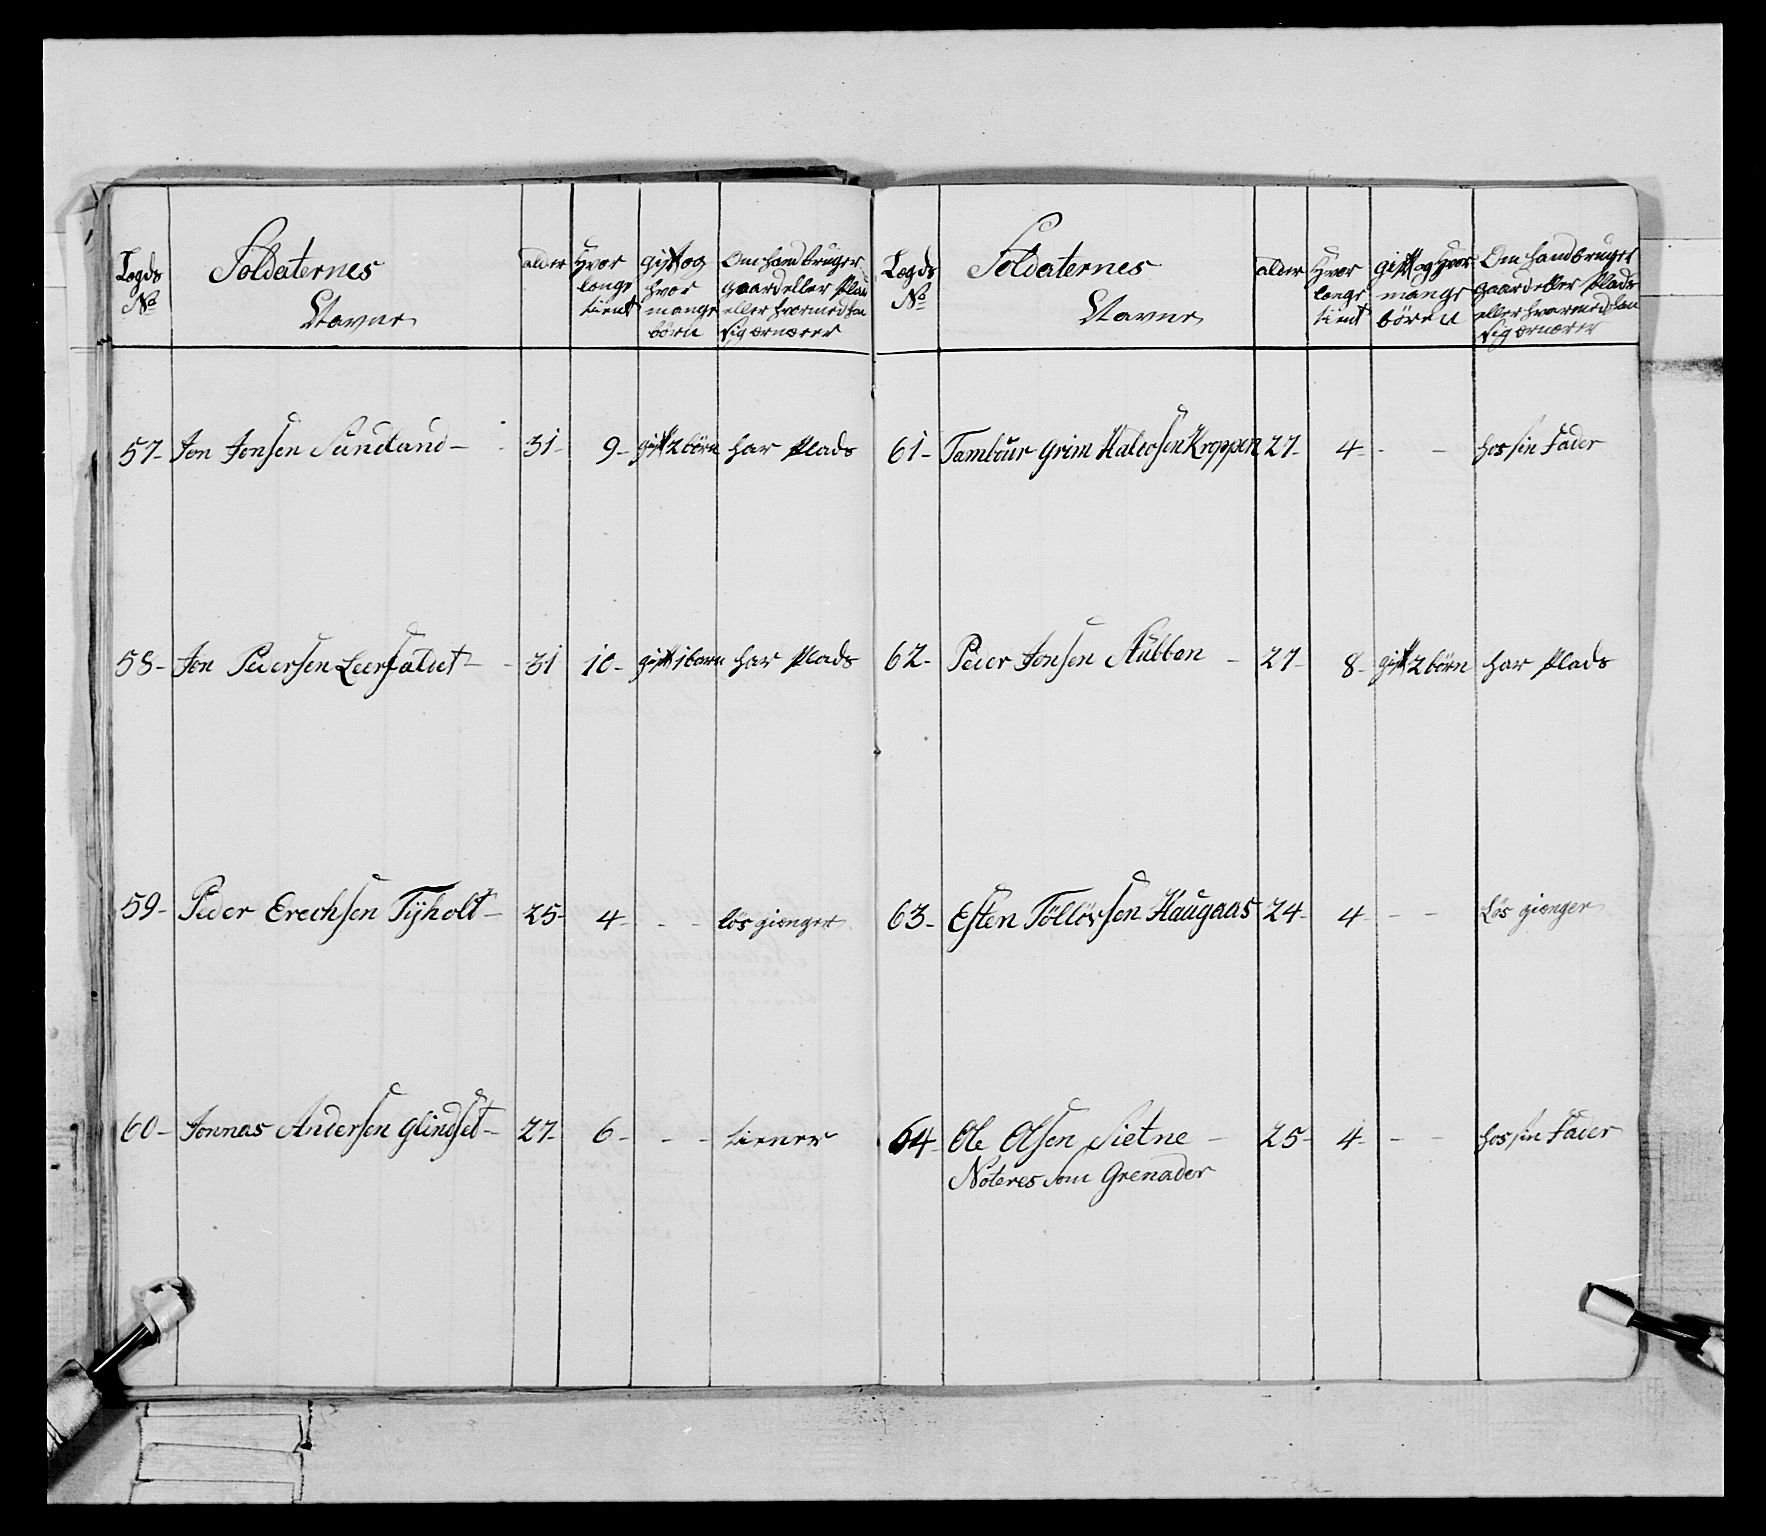 Legds No Soldaternes Navne alder Hvor lenge tient gift og hvor mange börn Om hand bruger gaard eller Plads eller hvormed han sig ernærer
57- Jon Jonsen Sundland - 31- 9- gift 2 börn har Plads
58- Jon Pedersen Leersaldet - 31 10- gift 1 barn har Plads
59- Peder Erechsen Tyholt - 25- 4- - - lös giænger
60- Jonnas Andersen Glindset - 27- 6- - - tiener
Legds No Soldaternes Navne alder Hvor lenge tient gift og Hvor mange börn Om hand bruger gaard eller Plads eller hvormed han sig ernærer
61- Tambur Grim Kroppen 27- 4- - - hos sin Fader
62- Peder Jonsen Stubben - 27- 8- gift 2 börn har Plads
63- Esten Töllövsen Haugaas 24- 4- - - Lös giænger
64- Ole Olsen Sietne - 25- 4- - - hos sin Fader
Noteres som Grenader